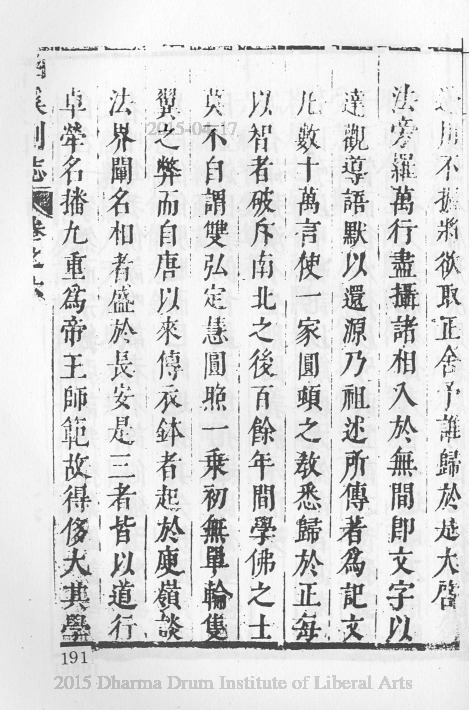 則不據將欲取正舍予誰歸於是大啓
法旁羅萬行盡攝諸相入於無間即文字以
達觀導語默以還源乃祖述所傳著爲記文
凡數十萬言使一家圓頓之教悉歸於正每
以智者破斥南北之後百餘年間學佛之士
莫不自謂雙弘定慧圓照一乘初無單輪隻
翼之弊而自唐以來傳衣鉢者起於庾嶺談
法界闡名相者盛於長安是三者皆以道行
卓犖名播九重爲帝王師範故得侈大其學
溪別志 卷之六
2015-04-17
191
2015 Dharma Drum Institute of Liberal Arts